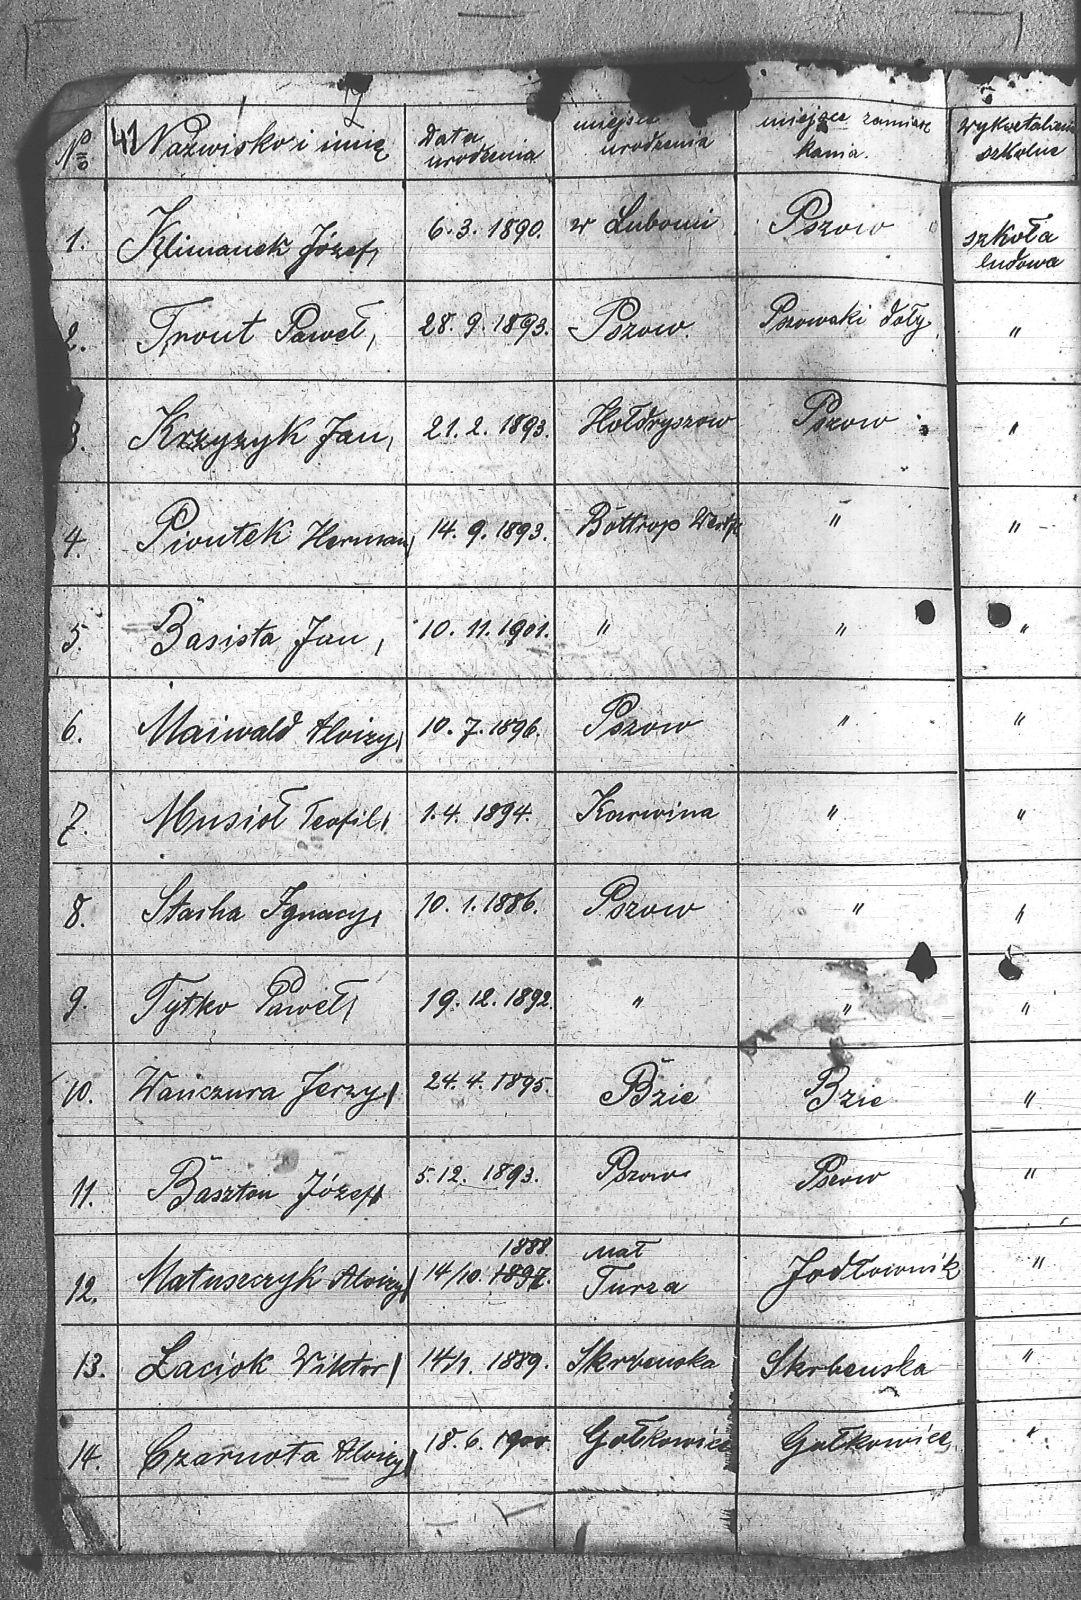 No 41 Nazwisko i imię Data urodzenia miejsce urodzenia miejsce zamiesz kania. wykształcenie szkolne
1. Klimanek Józef, 6.3.1890. w Lubomi Pszow szkoła ludowa
2. Tront Paweł, 28.9.1893. Pszow. Pszowski doły. "
3. Krzyzyk Jan, 21.2.1893. Hołdryszow Pszow "
4. Piontek Herman 14.9.1893. Bottrop " "
5. Basista Jan, 10.11.1901. " " "
6. Maiwald Aloizy 10.7.1896. Pszow " "
7. Musioł Teofil 1.4.1894. Karwina " "
8. Stacha Ignacy 10.1.1886. Pszow " "
9. Tytko Paweł 19.12.1892. " " "
10. Wańczura Jerzy 24.4.1895. Bzie Bzie "
11. Baszton Józef 5.12.1893. Pszow Pszow "
1888. mał
12. Matuszczyk Aloizy 14/10. 1897. Turza Jodłownik "
13. Łaciok Wiktor 14/1. 1889. Skrbenska Skrbenska "
14. Czarnota Aloizy 18.6.1900. Gołkowice Gołkowice, "